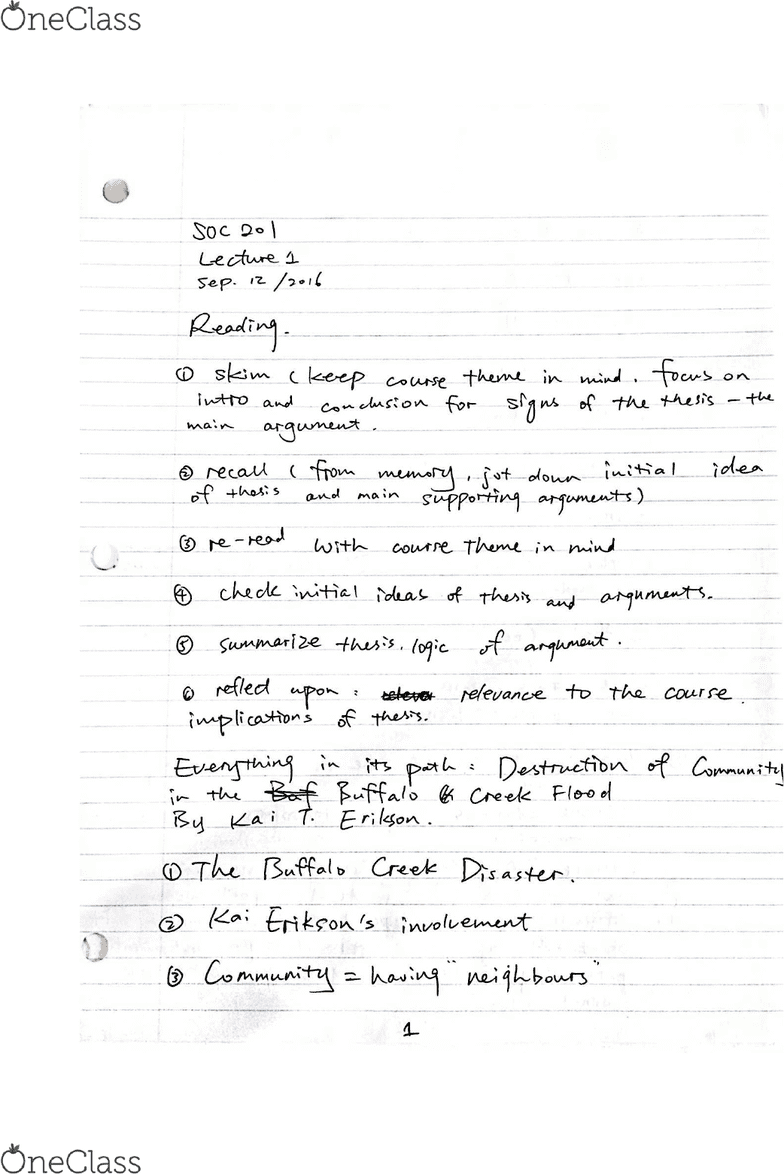 OneClass
SOC 201
Lecture 1
Sep. 12 /2016
Reading.
① skim ( keep course theme in mind. focus on
intro and conclusion for signs of the thesis – the
main argument.
② recall ( from memory, jot down initial idea
of thesis and main supporting arguments)
③ re-read with course theme in mind
④ check initial ideas of thesis and arguments.
⑤ summarize thesis. logic of argument.
⑥ reflect upon : relevance to the course.
implications of thesis.
Everything in its path : Destruction of Community
in the Buffalo Creek Flood
By Kai T. Erikson.
① The Buffalo Creek Disaster.
② Kai Erikson's involvement
③ Community = having "neighbours"
1
OneClass